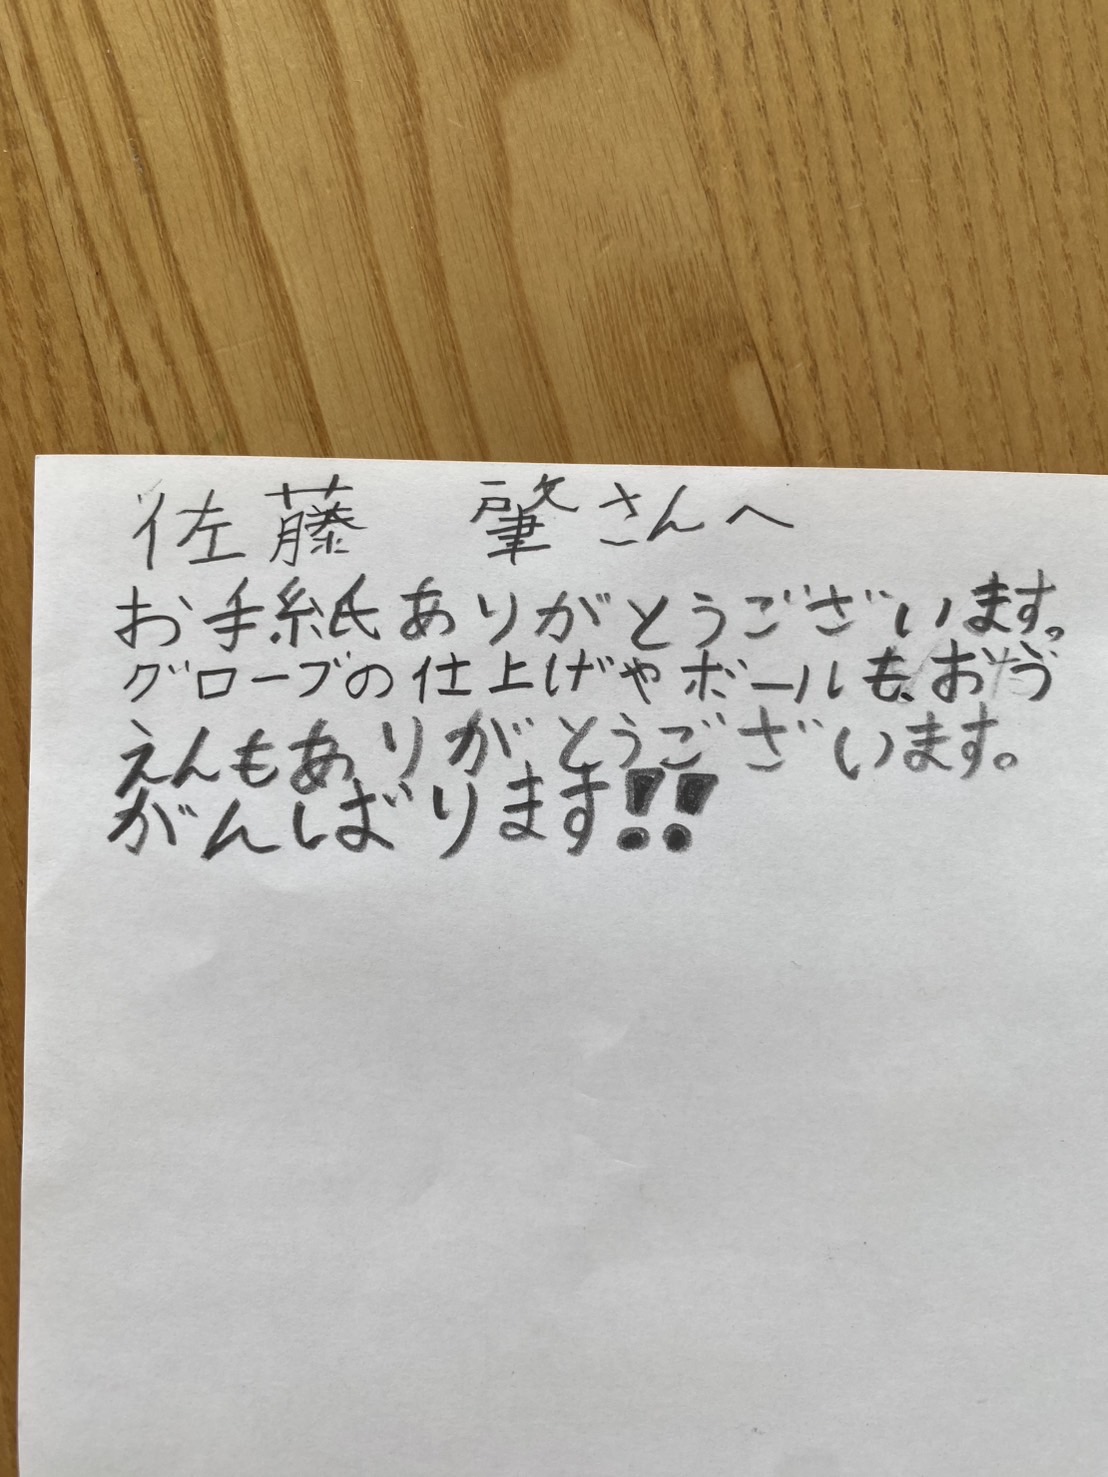 佐藤 肇さんへ
お手紙ありがとうございます。
グローブの仕上げやボールも、おう
えんもありがとうございます。
がんばります!!